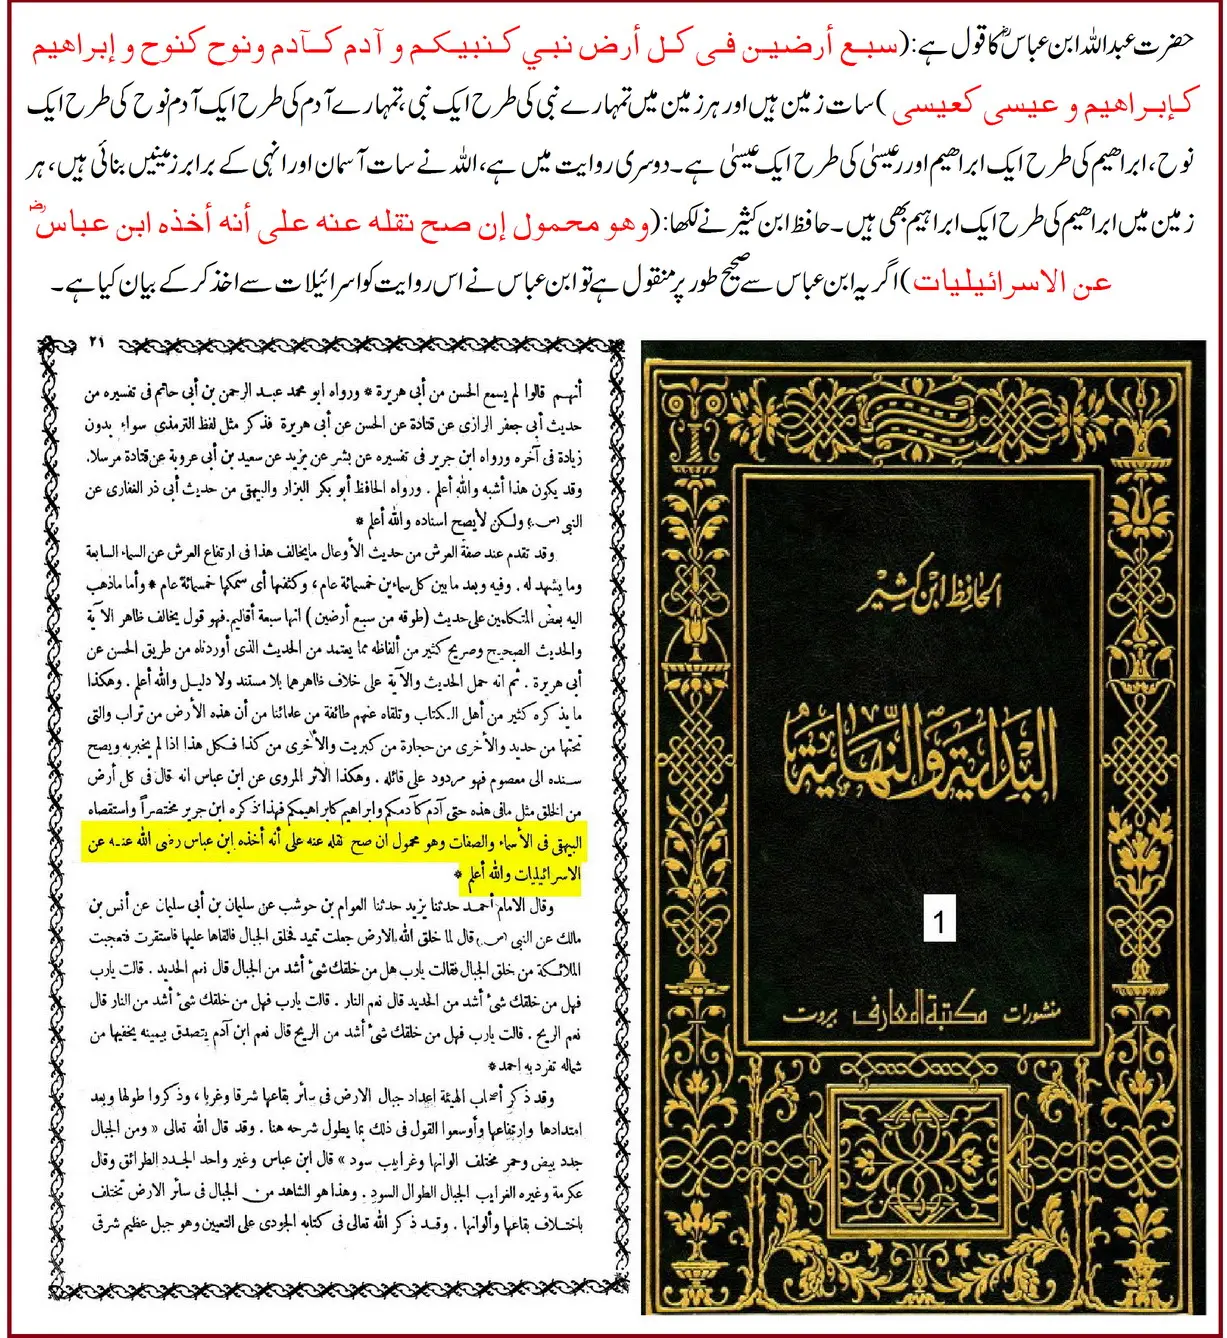 حضرت عبداللہ ابن عباسؓ کا قول ہے:(سبع أرضين فى كل أرض نبي كنبيكم و آدم كآدم ونوح كنوح و إبراهيم
كإبراهيم و عيسى كعيسى)سات زمین ہیں اور ہر زمین میں تمہارے نبی کی طرح ایک نبی،تمہارے آدم کی طرح ایک آدم نوح کی طرح ایک
نوح،ابراھیم کی طرح ایک ابراھیم اور عیسیٰ کی طرح ایک عیسیٰ ہے۔دوسری روایت میں ہے،اللہ نے سات آسمان اور انہی کے برابر زمینیں بنائی ہیں،ہر
زمین میں ابراھیم کی طرح ایک ابراہیم بھی ہیں۔حافظ ابن کثیر نے لکھا:(وهو محمول إن صح نقله عنه على أنه أخذه ابن عباس رضؓ
عن الاسرائيليات)اگر یہ ابن عباس سے صحیح طور پر منقول ہے تو ابن عباس نے اس روایت کو اسرائیلات سے اخذ کر کے بیان کیا ہے۔
٢١
أنهم قالوا لم يسمع الحسن من أبى هريرة * ورواه ابو محمد عبد الرحمن بن أبى حاتم فى تفسيره من
حديث أبى جعفر الرازى عن قتادة عن الحسن عن أبى هريرة فذكر مثل لفظ الترمذى سواء بدون
زيادة فى آخره ورواه ابن جرير فى تفسيره عن بشر عن يزيد عن سعيد بن أبى عروبة عن قتادة مرسلا.
وقد يكون هذا أشبه والله أعلم . ورواه الحافظ أبو بكر البزار والبيهقى من حديث أبى ذر الغفارى عن
النبى (ص.) ولكن لايصح اسناده والله أعلم *
وقد تقدم عند صفة العرش من حديث الأوعال مايخالف هذا فى ارتفاع العرش عن السماء السابعة
وما يشهد له . وفيه وبعد مابين كل سماءين خمسمائة عام ، وكثفها أى سمكها خمسمائة عام * وأما ماذهب
اليه بعض المتكلمين على حديث (طوقه من سبع أرضين ) انها سبعة أقاليم.فهو قول يخالف ظاهر الآية
والحديث الصحيح وصريح كثير من ألفاظه مما يعتمد من الحديث الذى أوردناه من طريق الحسن عن
أبى هريرة . ثم انه حمل الحديث والآية على خلاف ظاهرهما بلا مستند ولا دليل والله أعلم . وهكذا
ما يذكره كثير من أهل الكتاب وتلقاه عنهم طائفة من علمائنا من أن هذه الأرض من تراب والتى
تحتها من حديد والأخرى من حجارة من كبريت والأخرى من كذا فكل هذا اذا لم يخبر به ويصح
سنده الى معصوم فهو مردود على قائله . وهكذا الأثر المروى عن ابن عباس انه قال فى كل أرض
من الخلق مثل مافى هذه حتى آدم كآدمكم وابراهيم كابراهيمكم فهذا ذكره ابن جرير مختصراً واستقصاه
البيهقى فى الأسماء والصفات وهو محمول ان صح نقله عنه على أنه أخذه ابن عباس رضى الله عنه عن
الاسرائيليات والله أعلم *
وقال الامام أحمد حدثنا يزيد حدثنا العوام بن حوشب عن سليمان بن أبى سليمان عن أنس بن
مالك عن النبى (ص.) قال لما خلق الله الارض جعلت تميد فخلق الجبال فالقاها عليها فاستقرت فتعجبت
الملائكة من خلق الجبال فقالت يارب هل من خلقك شئ أشد من الجبال قال نعم الحديد . قالت يارب
فهل من خلقك شئ أشد من الحديد قال نعم النار . قالت يارب فهل من خلقك شئ أشد من النار قال
نعم الريح . قالت يارب فهل من خلقك شئ أشد من الريح قال نعم ابن آدم يتصدق بيمينه يخفيها من
شماله تفرد به احمد *
وقد ذكر أصحاب الهيئة اعداد جبال الارض فى سائر بقاعها شرقا وغربا ، وذكروا طولها وبعد
امتدادها وارتفاعها وأوسعوا القول فى ذلك بما يطول شرحه هنا . وقد قال الله تعالى « ومن الجبال
جدد بيض وحمر مختلف الوانها وغرابيب سود » قال ابن عباس وغير واحد الجدد الطرائق وقال
عكرمة وغيره الغرابيب الجبال الطوال السود . وهذا هو الشاهد من الجبال فى سائر الارض تختلف
باختلاف بقاعها وألوانها . وقد ذكر الله تعالى فى كتابه الجودى على التعيين وهو جبل عظيم شرقى
الحافظ ابن كثير
البداية والنهاية
1
منشورات مكتبة المعارف بيروت